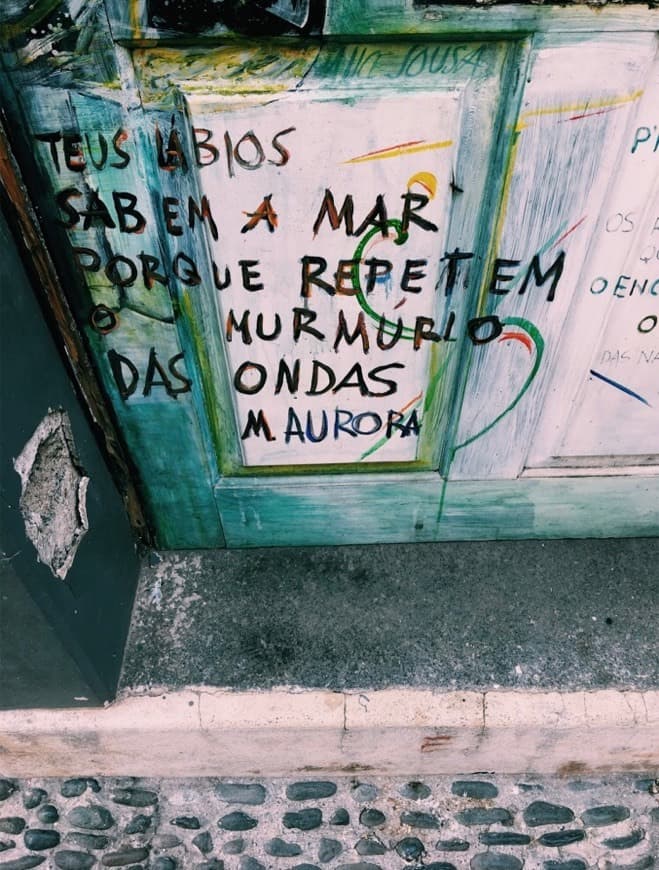 SOUSA
TEUS LÁBIOS
SABEM A MAR
PORQUE REPETEM
O MURMÚRIO
DAS ONDAS
M. AURORA
OS
O